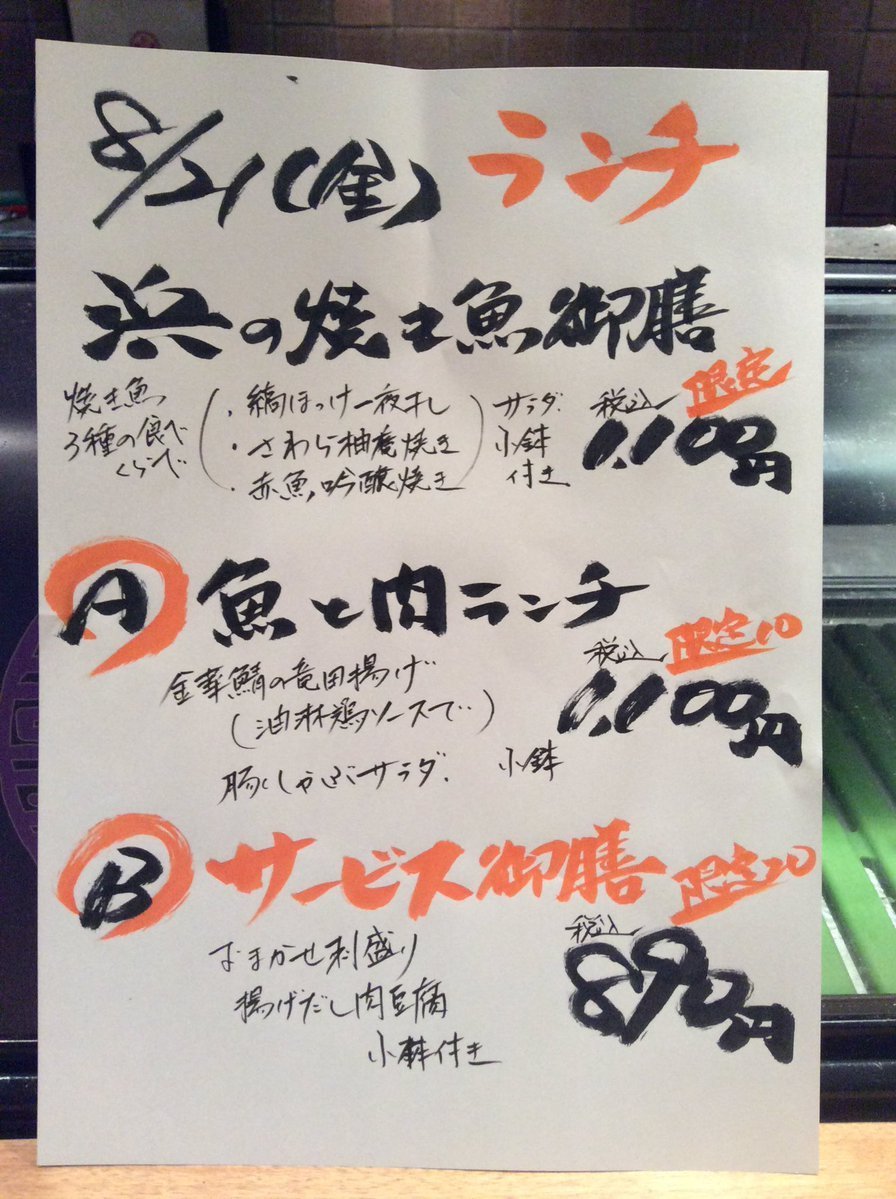 8/21(金) ランチ
浜の焼き魚御膳
焼き魚
3種の食べ
くらべ
・縞ほっけ一夜干し
・さわら柚庵焼き
・赤魚吟醸焼き
サラダ
小鉢
付き
限定
税込
1,100円
A 魚と肉ランチ
限定10
税込
1,100円
金華鯖の竜田揚げ
(油淋鶏ソースで…)
豚しゃぶサラダ 小鉢
B サービス御膳 限定20
税込
890円
おまかせ刺盛り
揚げだし肉豆腐
小鉢付き